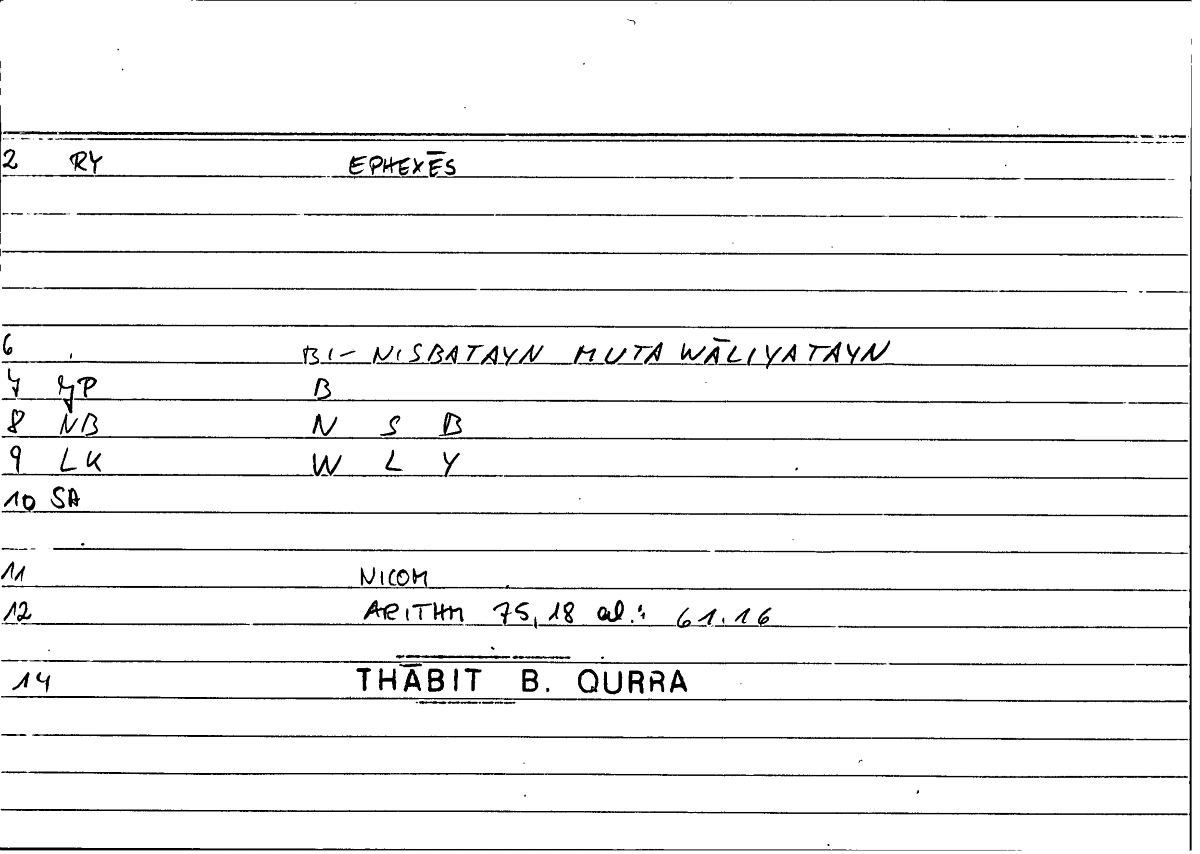 2 RY EPHEXĒS
6 BI- NISBATAYN MUTAWĀLIYATAYN
7 YP B
8 NB N S B
9 LK W L Y
10 SA
11 NICOM
12 ARITHM 75,18 al.: 61.16
14 THĀBIT B. QURRA